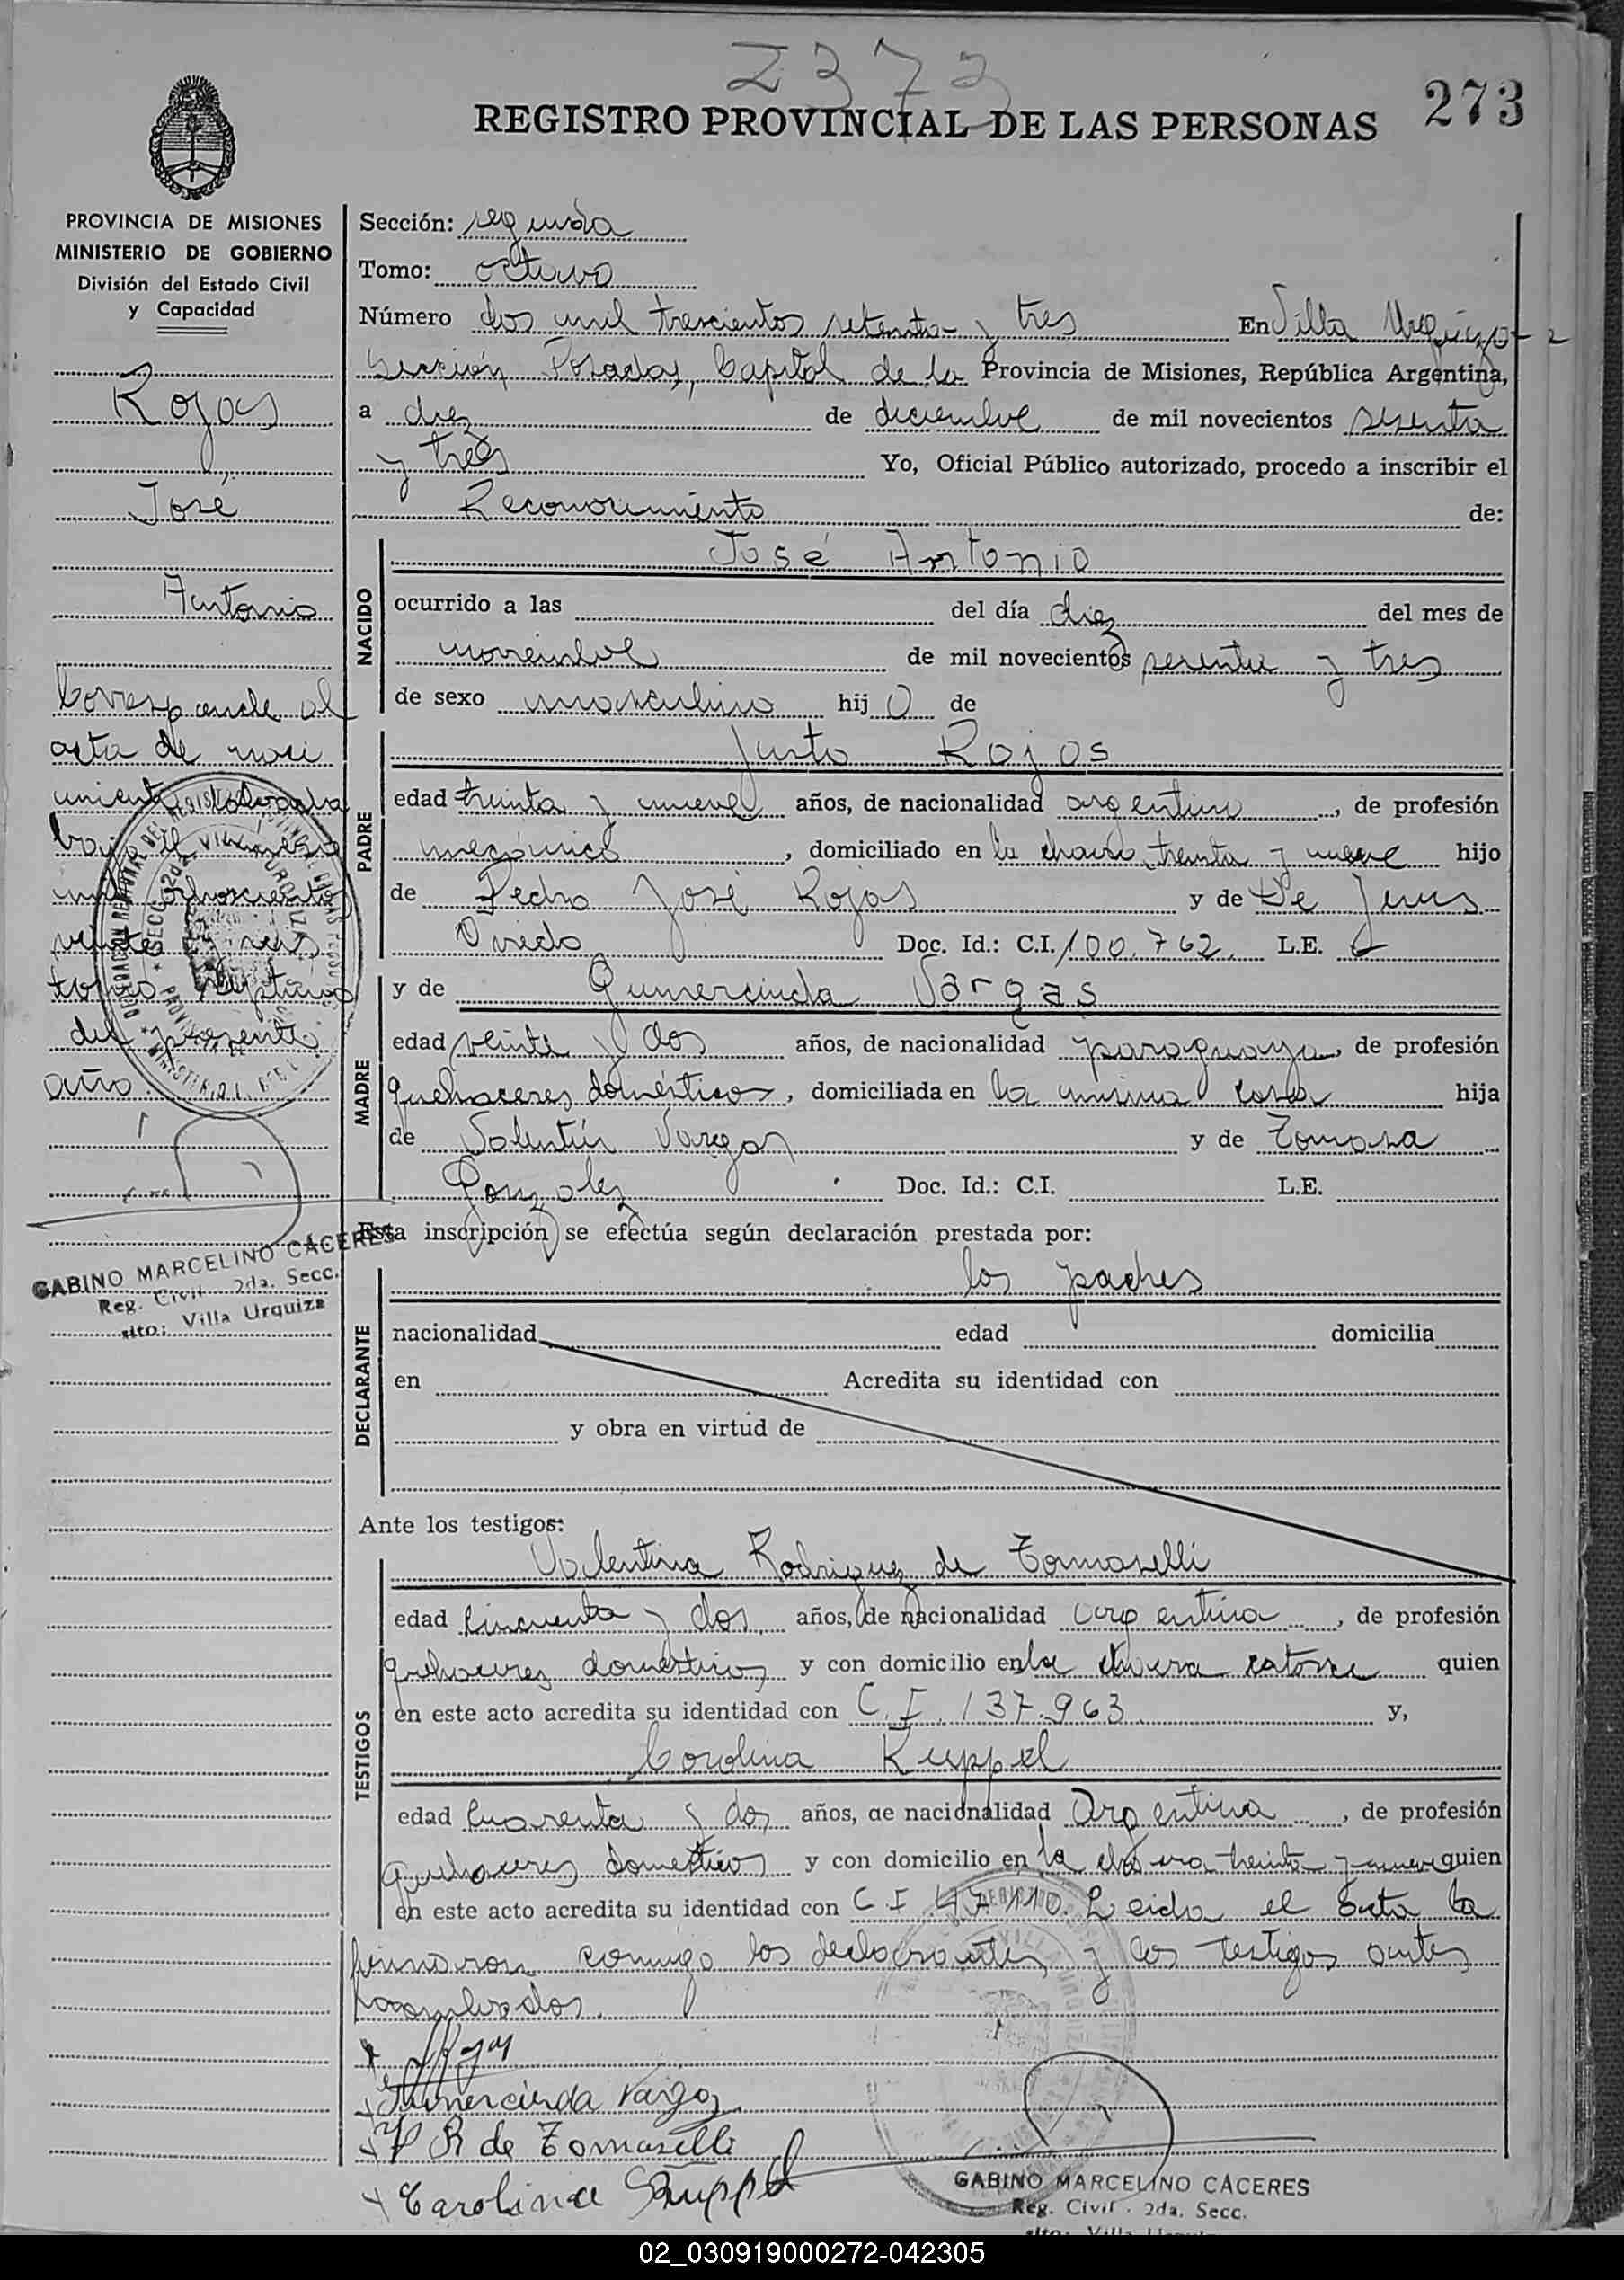 2373
REGISTRO PROVINCIAL DE LAS PERSONAS
273
PROVINCIA DE MISIONES
MINISTERIO DE GOBIERNO
División del Estado Civil
y Capacidad
Rojas
José
Antonio
Corresponde al
acta de naci
miento labrada
bajo el
mil ochocientos
veinte y seis
tomo septimo
del presente
año.
GABINO MARCELINO CÁCERES
Reg. Civil 2da. Secc.
Villa Urquiza
Sección: segunda
Tomo: octavo
Número dos mil trescientos setenta y tres En Villa Urquiza 2
Sección Posadas, Capital de la Provincia de Misiones, República Argentina,
a diez de diciembre de mil novecientos sesenta
y tres Yo, Oficial Público autorizado, procedo a inscribir el
Reconocimiento de:
NACIDO
José Antonio
ocurrido a las del día diez del mes de
noviembre de mil novecientos sesenta y tres
de sexo masculino hijo de
PADRE
Justo Rojas
edad treinta y nueve años, de nacionalidad argentino, de profesión
mecánico, domiciliado en la chacra treinta y nueve hijo
de Pedro José Rojas y de De Jesus
Oviedo Doc. Id.: C.I. 100.762. L.E.
MADRE
y de Gumercinda Vargas
edad veinte y dos años, de nacionalidad paraguaya, de profesión
quehaceres domésticos, domiciliada en la misma casa hija
de Valentín Vargas y de Tomasa
Gonzalez Doc. Id.: C.I. L.E.
Esta inscripción se efectúa según declaración prestada por:
DECLARANTE
los padres
nacionalidad edad domicilia
en Acredita su identidad con
y obra en virtud de
Ante los testigos:
TESTIGOS
Valentina Rodriguez de Tomaselli
edad cincuenta y dos años, de nacionalidad argentina, de profesión
quehaceres domésticos y con domicilio en la chacra catorce quien
en este acto acredita su identidad con C.I. 137.963 y,
Carolina Ruppel
edad cuarenta y dos años, de nacionalidad Argentina, de profesión
quehaceres domésticos y con domicilio en la chacra treinta y nueve quien
en este acto acredita su identidad con C I 47.110. Leida el acta la
firmaron conmigo los declarantes y los testigos antes
nombrados.
Gumercinda Vargas
V R de Tomaselli
Carolina Ruppel
GABINO MARCELINO CÁCERES
Reg. Civil . 2da. Secc.
02_030919000272-042305